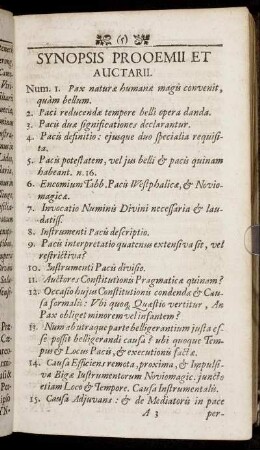 (5)
SYNOPSIS PROOEMII ET
AUCTARII.
Num. 1. Pax naturæ humanæ magis convenit,
quàm bellum.
2. Paci reducendæ tempore belli opera danda.
3. Pacis duæ significationes declarantur.
4. Pacis definitio: ejusque duo specialia requisi-
ta.
5. Pacis potestatem, vel jus belli & pacis quinam
habeant. n. 16.
6. Encomium Tabb. Pacis Westphalicæ, & Novio-
magicæ.
7. Invocatio Numinis Divini necessaria & lau-
datiss.
8. Instrumenti Pacis descriptio.
9. Pacis interpretatio quatenus extensiva sit, vel
restrictiva?
10. Instrumenti Pacis divisio.
11. Auctores Constitutionis Pragmaticæ quinam?
12. Occasio hujus Constitutionis condendæ & Cau-
sa formalis: Ubi quoq. Quæstio vertitur, An
Pax obliget minorem vel infantem?
13. Num ab utraque parte belligerantium justa es-
se possit belligerandi causa? ubi quoque Tem-
pus & Locus Pacis, & executionis factæ.
14. Causa Efficiens remota, proxima, & Impulsi-
va Bigæ Instrumentorum Noviomagic. juncto
etiam Loco & Tempore. Causa Instrumentalis.
15. Causa Adjuvans: & de Mediatoris in pace
A 3 per-